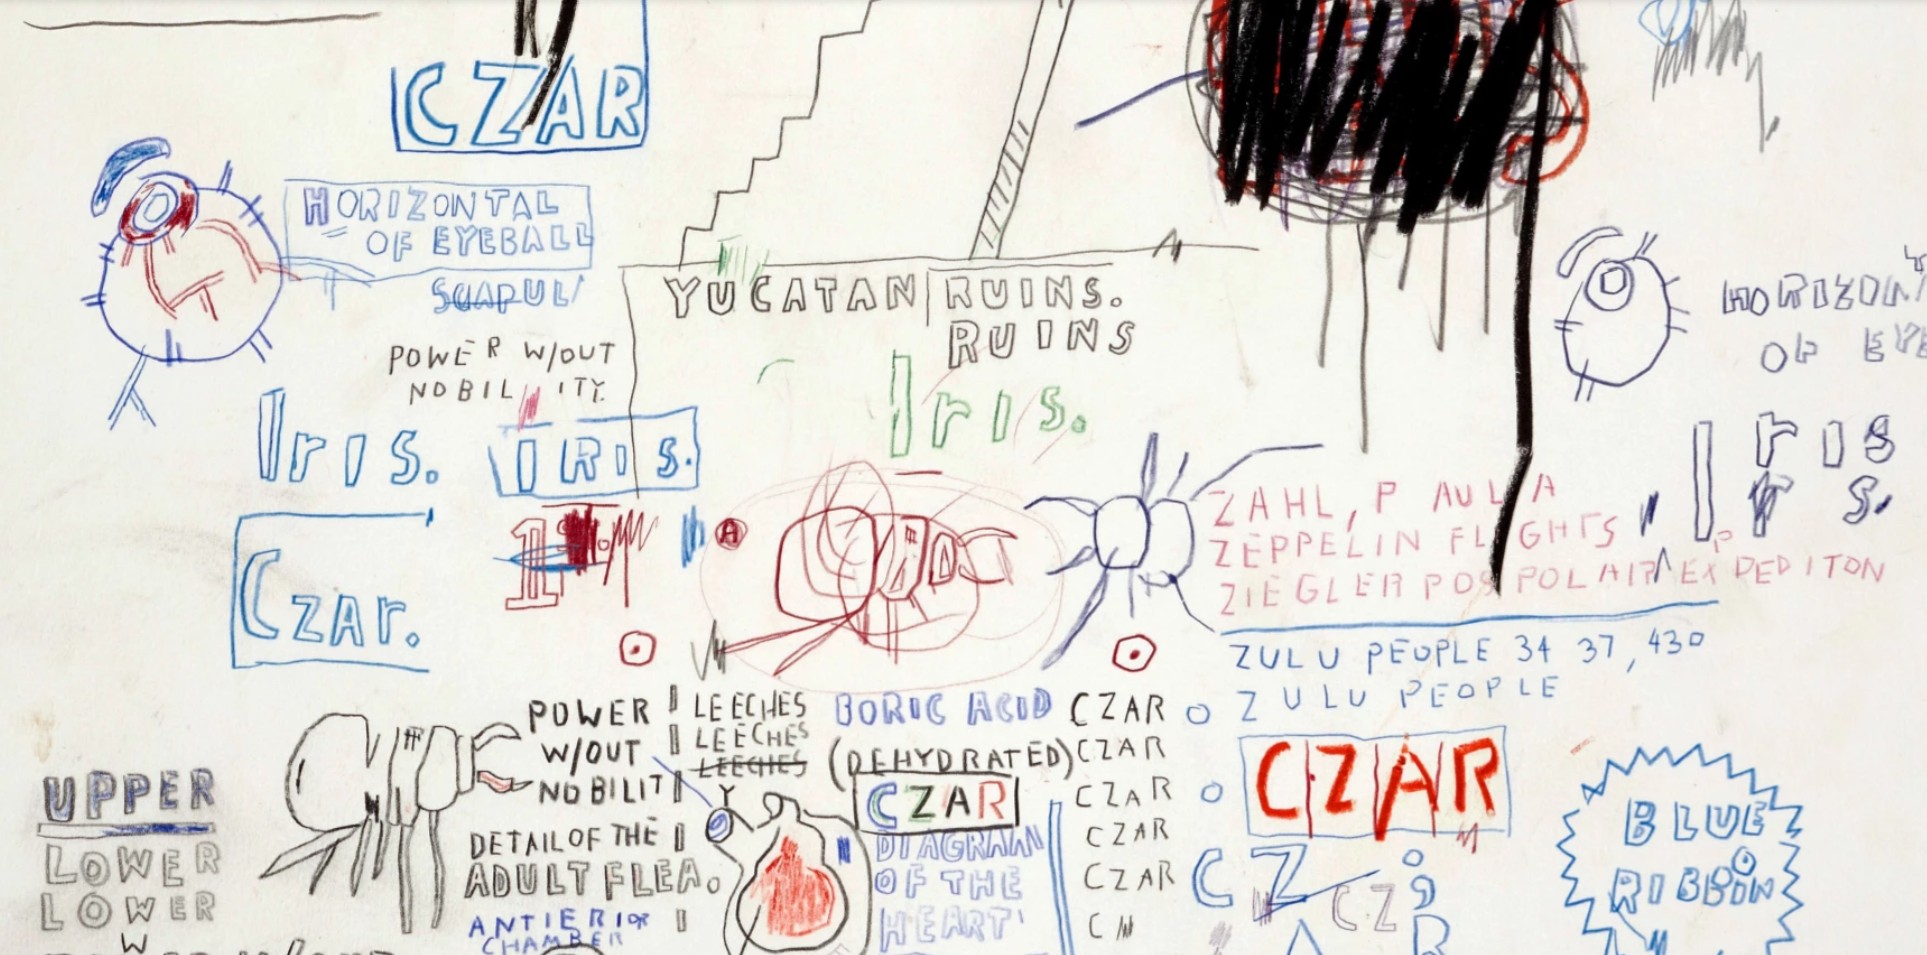 CZAR
HORIZONTAL
OF EYEBALL
POWER W/OUT
NOBILITY.
YUCATAN RUINS.
RUINS
Iris.
IRIS.
Iris.
CZAr.
A
HORIZON
OF EYE
Iris
r s.
ZAHL, PAULA
ZEPPELIN FLIGHTS
ZIEGLER POS POLAR EXPEDITON
ZULU PEOPLE 34 37,430
ZULU PEOPLE
POWER
W/OUT
NOBILITY
LEECHES
LEECHES
LEECHES
BORIC ACID
(DEHYDRATED)
CZAR
DIAGRAM
OF THE
HEART
CZAR
CZAR
CZAR
CZAR
CZAR
C
CZAR
CZ
CZ
A
R
BLUE
RIBBON
UPPER
LOWER
LOWER
W
DETAIL OF THE
ADULT FLEA.
ANTIERIOR
CHAMBER